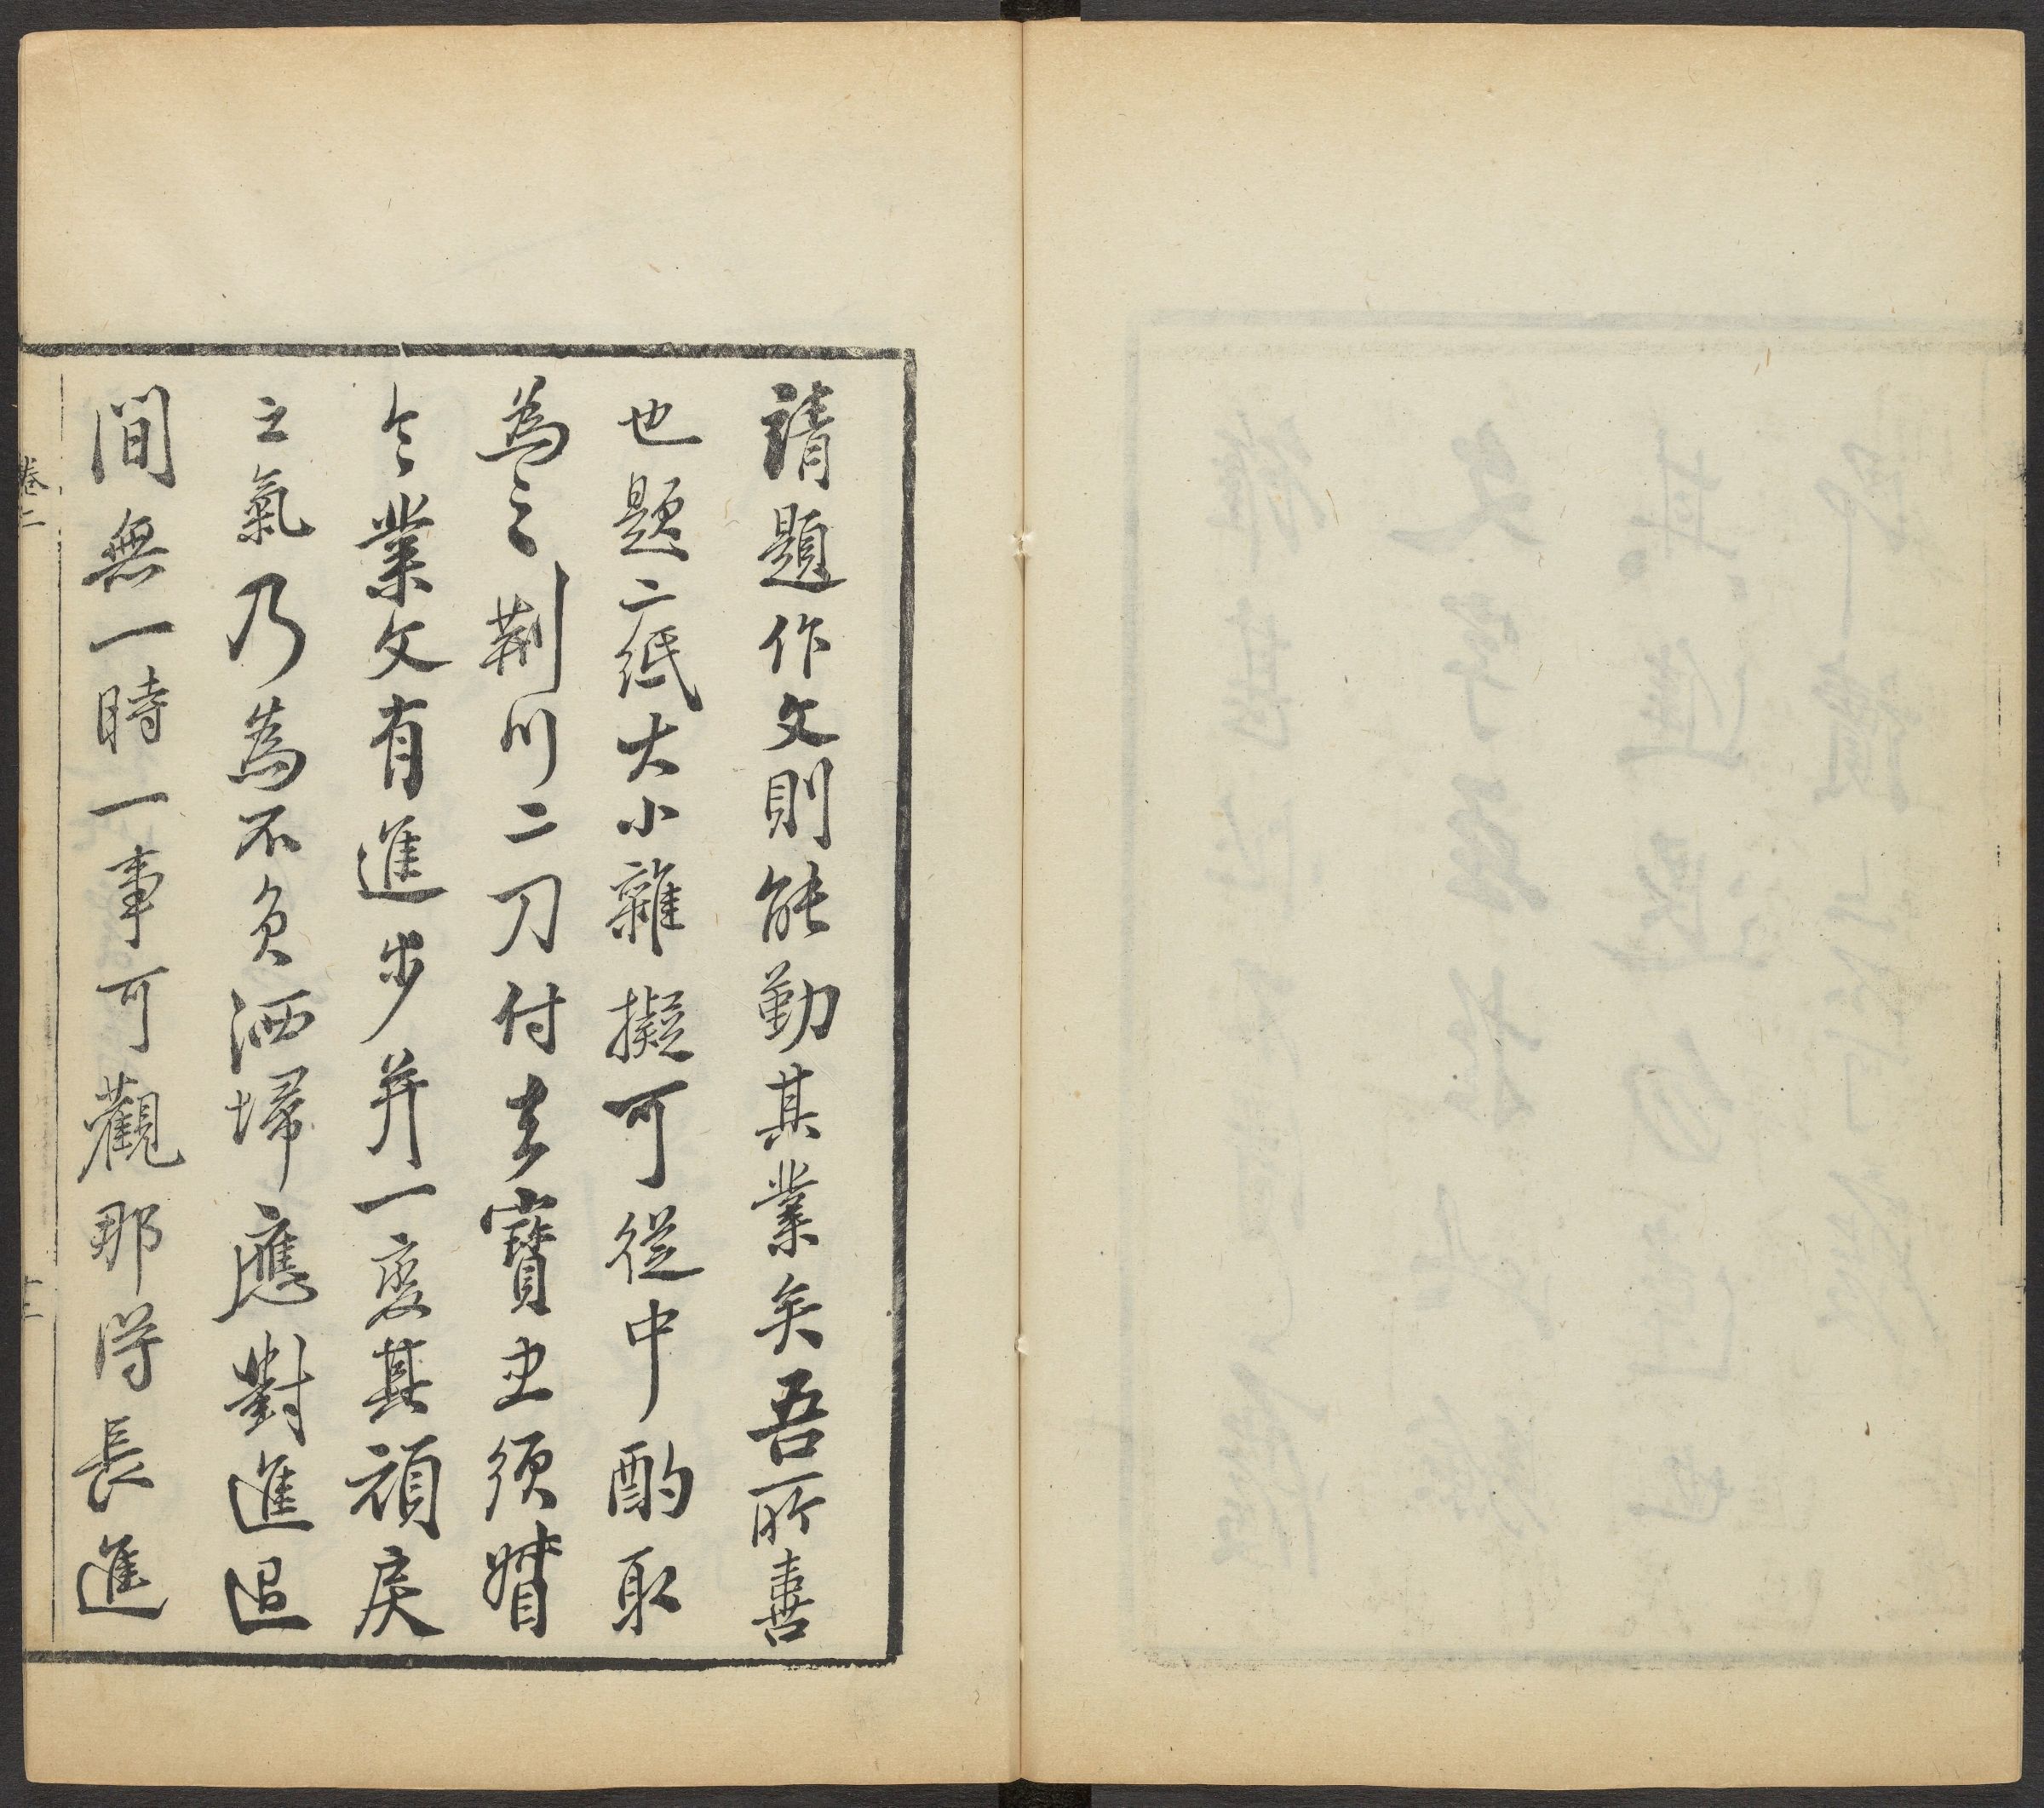 請題作文則能勤其業矣吾所喜
也題二紙大小雜擬可從中酌取
為之荆川二刀付去寶

須
令業文有進步并一變其頑戾
之氣乃為不負洒埽應對進退
間無一時一事可觀那得長進
卷二